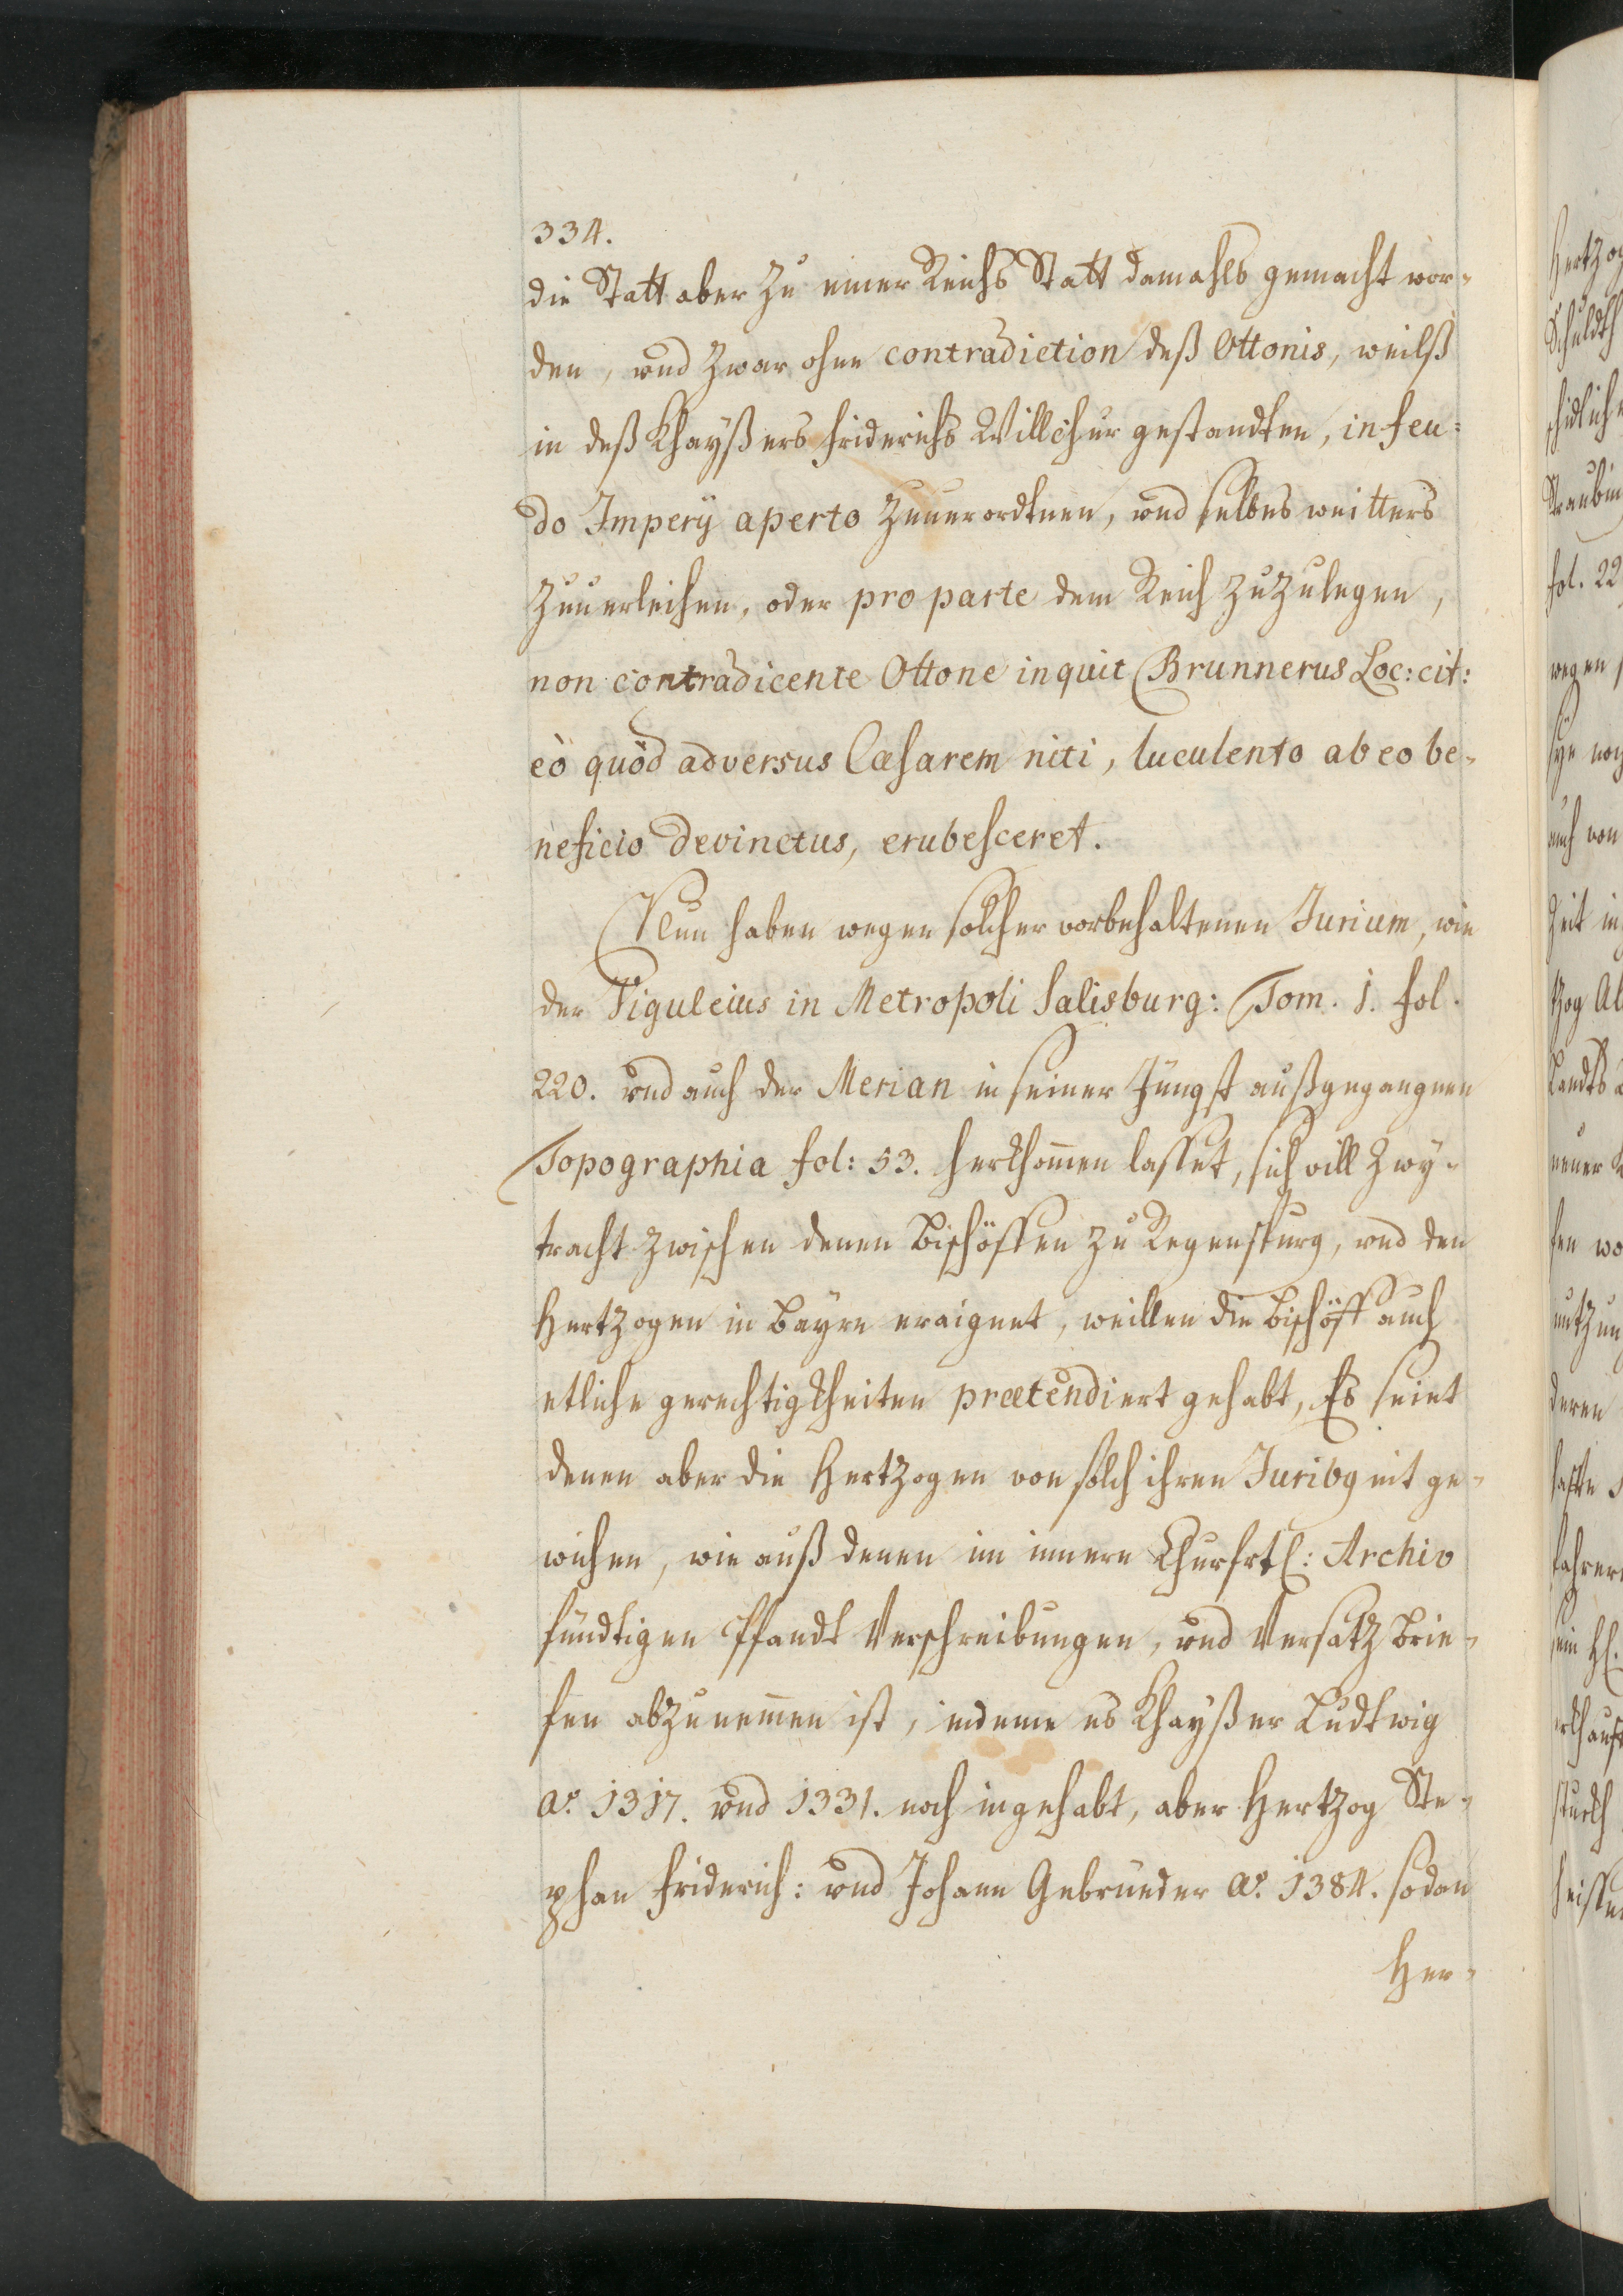 334.
die Statt aber zu einer Reichs Statt damahls gemacht wor-
den, und zwar ohne contradiction deß Ottonis, weilß
in deß Khayßers Friderichs Willchur gestandten, in feu-
do Imperij aperto zuuerordtnen, und selbes weitters
zuuerleihen, oder pro parte dem Reich zuzulegen,
non contradicente Ottone inquit Brunnerus Loc: cit:
eò quòd adversus Cæsarem niti, luculento ab eo be-
neficio devinctus, erubesceret.
Nun haben wegen solcher vorbehaltenen Jurium, wie
der Viguleius in Metropoli Salisburg: Tom. 1. fol.
220. und auch der Merian in seiner Jüngst außgegangnen
Topographia fol: 53. herkhom̃en lasset, sich vill Zwy-
tracht zwischen denen Bischöffen zu Regenspurg, und den
Hertzogen in Bayrn eraignet, weillen die Bischöff auch
etliche gerechtigkheiten prætendiert gehabt, Es seint
denen aber die Hertzogen von solch ihren Juribg nit ge-
wichen, wie auß denen im innern Churfrtl: Archiv
fündtigen Pfandt Verschreibungen, und Versatz Brie-
fen abzunem̃en ist, indeme es Khayßer Ludtwig
aº. 1317. und 1331. noch ingehabt, aber Hertzog Ste-
phan Friderich: und Johann Gebrüeder aº. 1384. sodan
Her-
Hertzog
Schuldth
Straubin
fol. 22
wegen
auch von
Zeit in
tzog Al
Landts
neuer
nutzun
deren